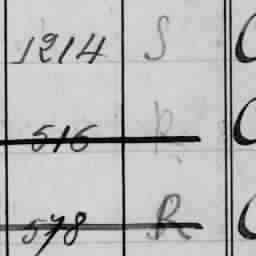 1214 S
516 R
578 R